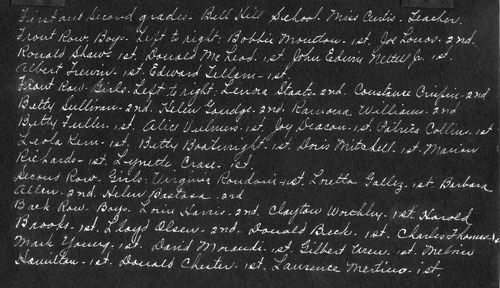 First and Second grades - Bell Hill School. Miss Curtis - Teacher.
Front Row Boys. Left to right; Bobbie Moulton - 1st. Joe Lucas - 2nd.
Ronald Shaw - 1st. Donald McLeod. 1st. John Edwin Jr. 1st.
Albert 1st. Edward 1st.
Front Row. Girls. Left to right; Lenore Staats. 2nd. Constance 2nd
Betty Sullivan - 2nd. Helen Goudge. 2nd. Ramona Williams - 2nd
Betty Fuller - 1st. Alice 1st. Joy Deacon. 1st. Patrica Collins. 1st
Leola Kern - 1st, Betty Boatwright - 1st. Doris Mitchell. 1st. Marian
Richards - 1st. Lynette Crase - 1st.
Second Row. Girls. Virginia Rondoni - 1st. Loretta 1st. Barbara
Allen - 2nd. Helen Bastasa. 2nd
Back Row. Boys. Lorin Harris. 2nd. Clayton Worthley. 1st. Harold
Brooks - 1st. Lloyd Olsen - 2nd. Donald Beck. 1st. Charles Thomas
Mark Young - 1st. David Morandi. 1st. Gilbert Uren. 1st. Melvin
Hamilton - 1st. Donald Chester. 1st. Laurence Martino - 1st.